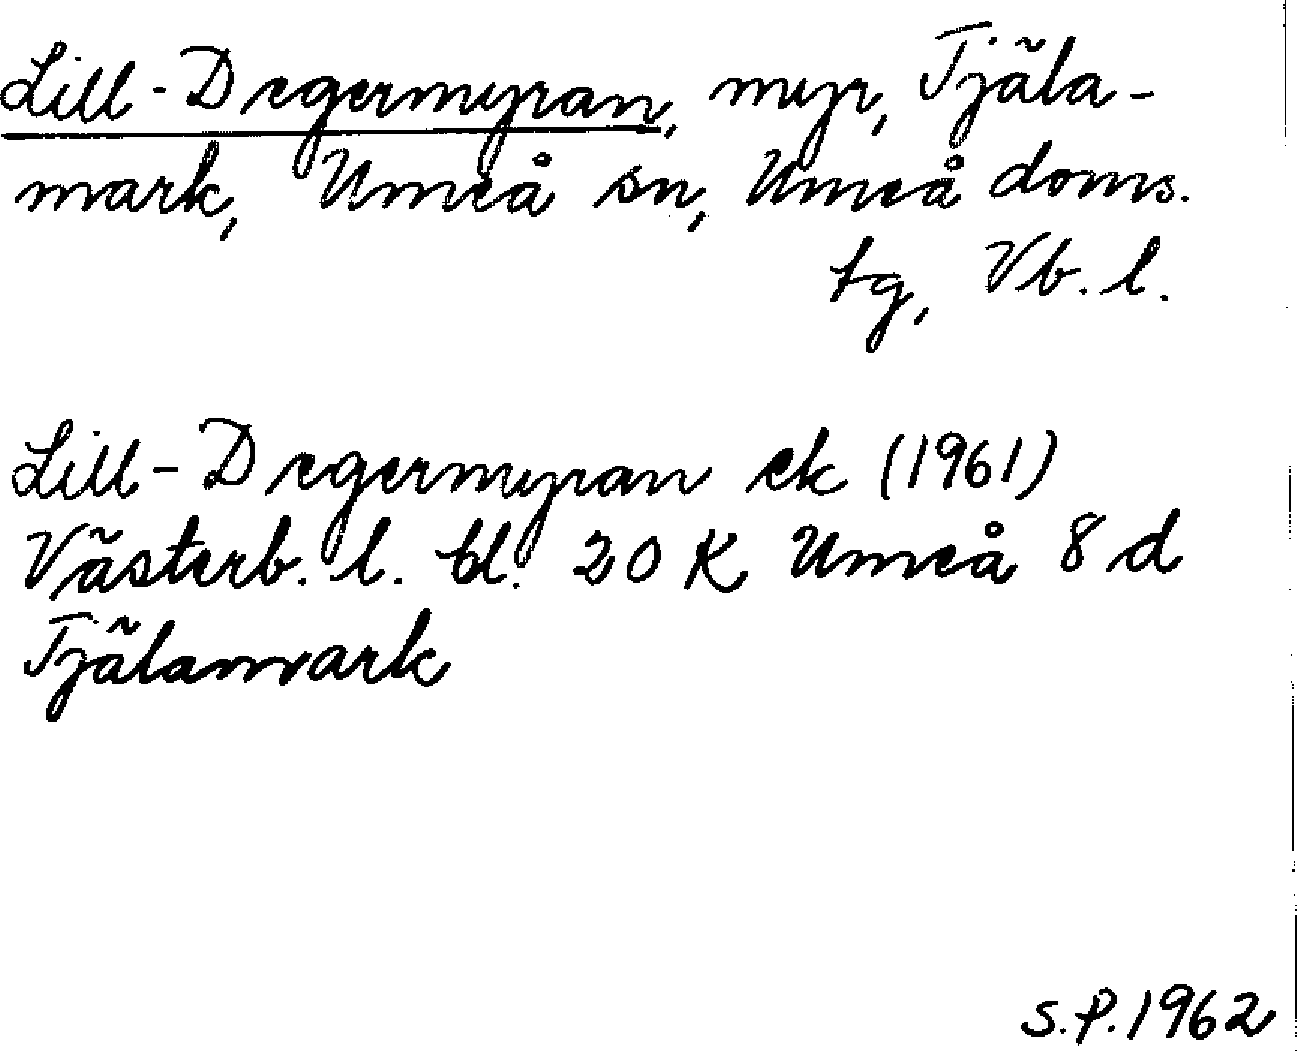 Lill-Degermyran, myr, Tjäla-
mark, Umeå sn, Umeå doms.
tg, Vb. l.
Lill-Degermyran ek (1961)
Västerb. l. bl. 20 K Umeå 8 d
Tjälamark
S.P. 1962